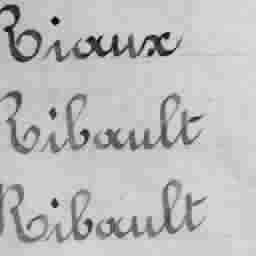 Rioux
Ribault
Ribault